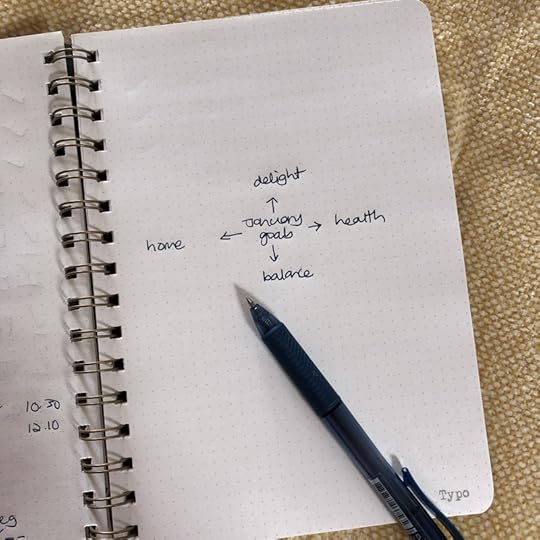 delight
↑
January
goals
← home
→ health
↓
balance
10.30
12.10
eg
Typo